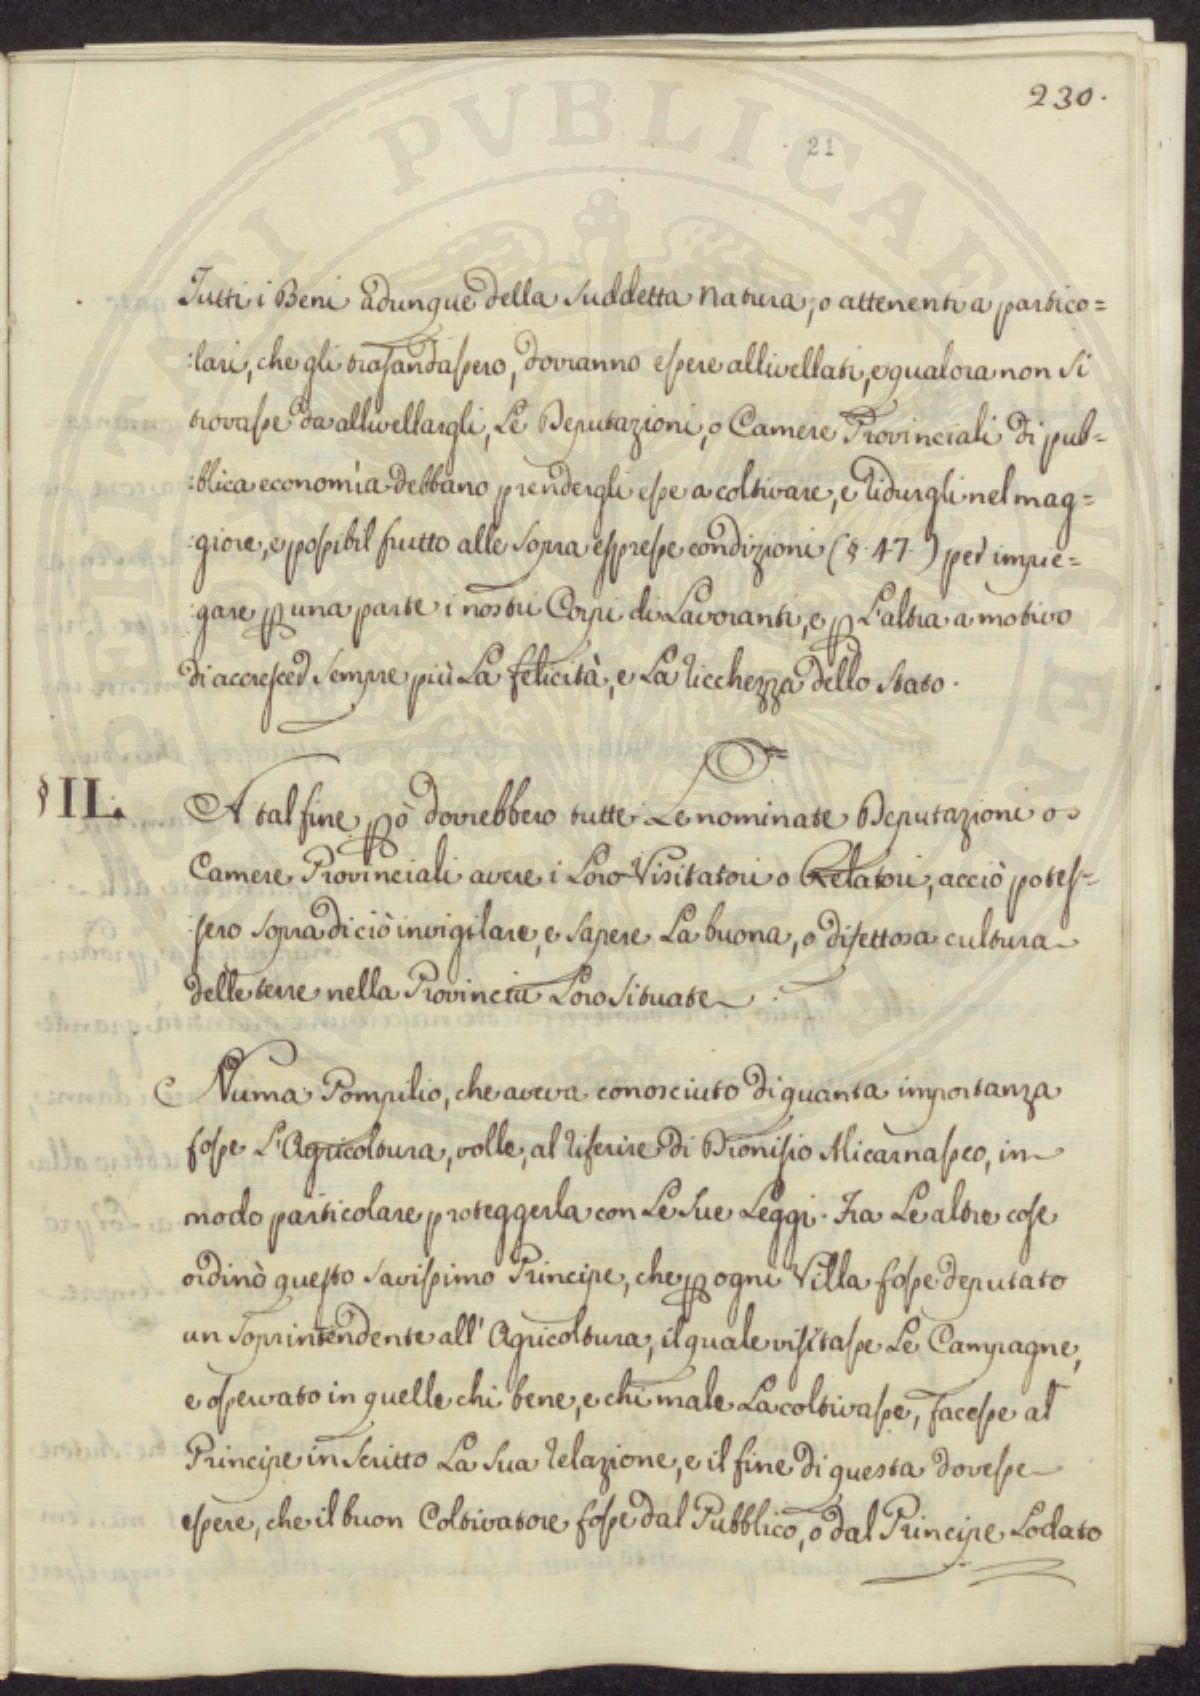 230.
21
Tutti i Beni adunque della suddetta natura, o attenenti a partico=
:lari, che gli trasandassero, dovranno essere allivellati, e qualora non si
trovasse da allivellargli, Le Deputazioni, o Camere Provinciali di pub=
:blica economia debbano prendergli esse a coltivare, e ridurgli nel mag=
:giore, e possibil frutto alle sopra espresse condizioni (§. 47.) per impie=
:gare p una parte i nostri Corpi di Lavoranti, e p L'altra a motivo
di accrescer sempre più La felicità, e La ricchezza dello Stato.
§ IL.
A tal fine pò dovrebbero tutte Le nominate Deputazioni o
Camere Provinciali avere i Loro Visitatori o Relatori, acciò potes=
:sero sopra di ciò invigilare, e sapere La buona, o difettosa cultura
delle terre nella Provincia Loro situate.
Numa Pompilio, che aveva conosciuto di quanta importanza
fosse L'Agricoltura, volle, al riferire di Dionisio Alicarnasseo, in
modo particolare proteggerla con Le sue Leggi. Fra Le altre cose
ordinò questo savissimo Principe, che p ogni Villa fosse deputato
un soprintendente all'Agricoltura, il quale visitasse Le Campagne,
e osservato in quelle chi bene, e chi male La coltivasse, facesse al
Principe in scritto La sua relazione, e il fine di questa dovesse
essere, che il buon Coltivatore fosse dal Pubblico, o dal Principe Lodato
PVBLICAE